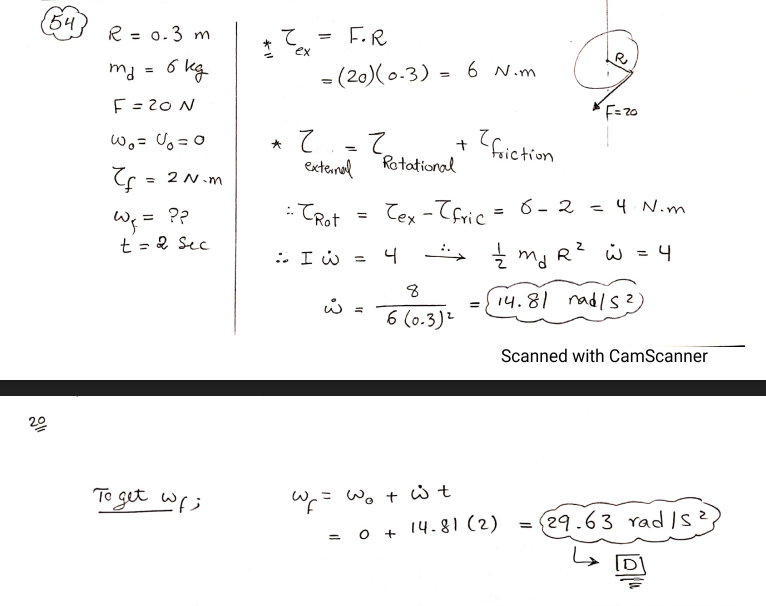 54
R = 0.3 m
m_d = 6 kg
F = 20 N
ω₀ = υ₀ = 0
τ_f = 2 N.m
ω_f = ??
t = 2 Sec
* τ_ex = F.R
= (20)(0.3) = 6 N.m
R
F=20
* τ_external = τ_Rotational + τ_friction
∴ τ_Rot = τ_ex - τ_fric = 6 - 2 = 4 N.m
∴ I ω̇ = 4 ∴→ 1/2 m_d R² ω̇ = 4
ω̇ = 8 / 6(0.3)² = 14.81 rad/s²
Scanned with CamScanner
20
To get ω_f ;
ω_f = ω₀ + ω̇ t
= 0 + 14.81 (2) = 29.63 rad/s²
↳ D